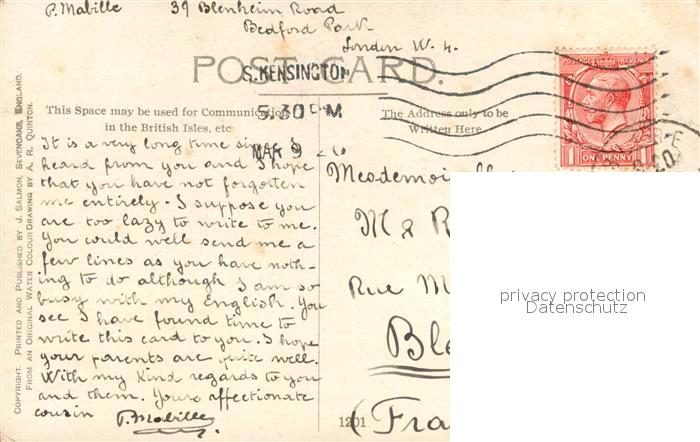 P. Mabille 39 Blenheim Road
Bedford Park
London W. 4.
POST CARD.
S. KENSINGTON
5.30 PM
MAR 9
This Space may be used for Communication
in the British Isles, etc
The Address only to be
Written Here
POSTAGE REVENUE
1 ONE PENNY 1
It is a very long time since I
heard from you and I hope
that you have not forgotten
me entirely. I suppose you
are too lazy to write to me.
You could well send me a
few lines as you have noth-
ing to do although I am so
busy with my English. You
see I have found time to
write this card to you. I hope
your parents are quite well.
With my kind regards to you
and them. Yours affectionate
cousin P. Mabille
Rue M
(Fra
1201
privacy protection
Datenschutz
COPYRIGHT. PRINTED AND PUBLISHED BY J. SALMON, SEVENOAKS, ENGLAND.
FROM AN ORIGINAL WATER COLOUR DRAWING BY A. R. QUINTON.